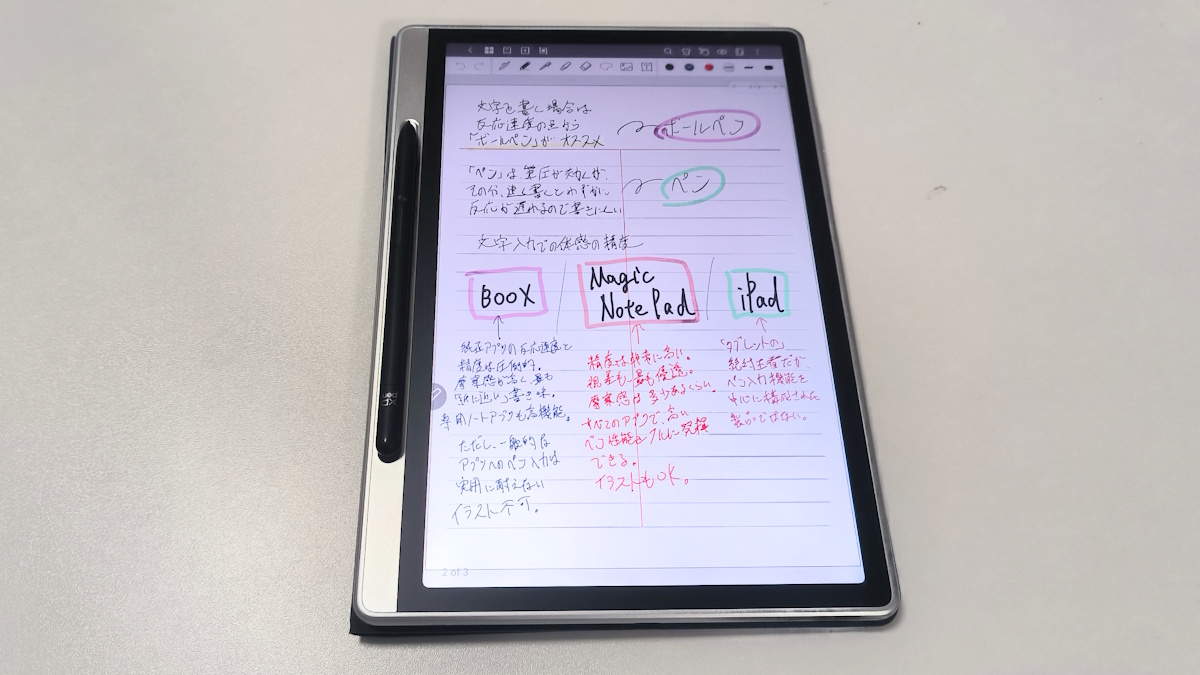 文字を書く場合は
反応速度の点から
「ボールペン」がオススメ
ボールペン
「ペン」は、筆圧が効くが、
その分、速く書くとわずかに
反応が遅れるので書きにくい
ペン
文字入力での体感の精度
BOOX
Magic
Note Pad
iPad
純正アプリの反応速度と
精度は圧倒的。
摩擦感が高く、最も
「紙に近い」書き味。
専用ノートアプリも高機能。
ただし、一般的な
アプリへのペン入力は
実用に耐えない
イラスト不可。
精度は非常に高い。
視差も、最も優逸。
摩擦感は多少あるくらい。
すべてのアプリで、高い
ペン性能をフルに発揮
できる。
イラストもOK。
「タブレットの」
絶対王者だが、
ペン入力機能を
中心に構成された
製品ではない。
2 of 3
xp
pen